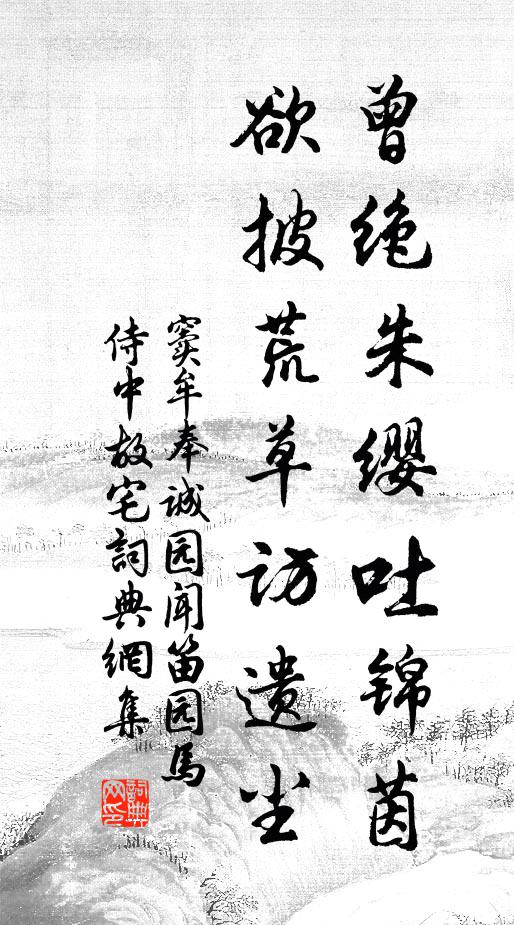 曾绝朱缨吐锦茵
欲披荒草访遗尘
窦牟奉诚园闻笛园馬
侍中故宅詞典網集
詞典网印